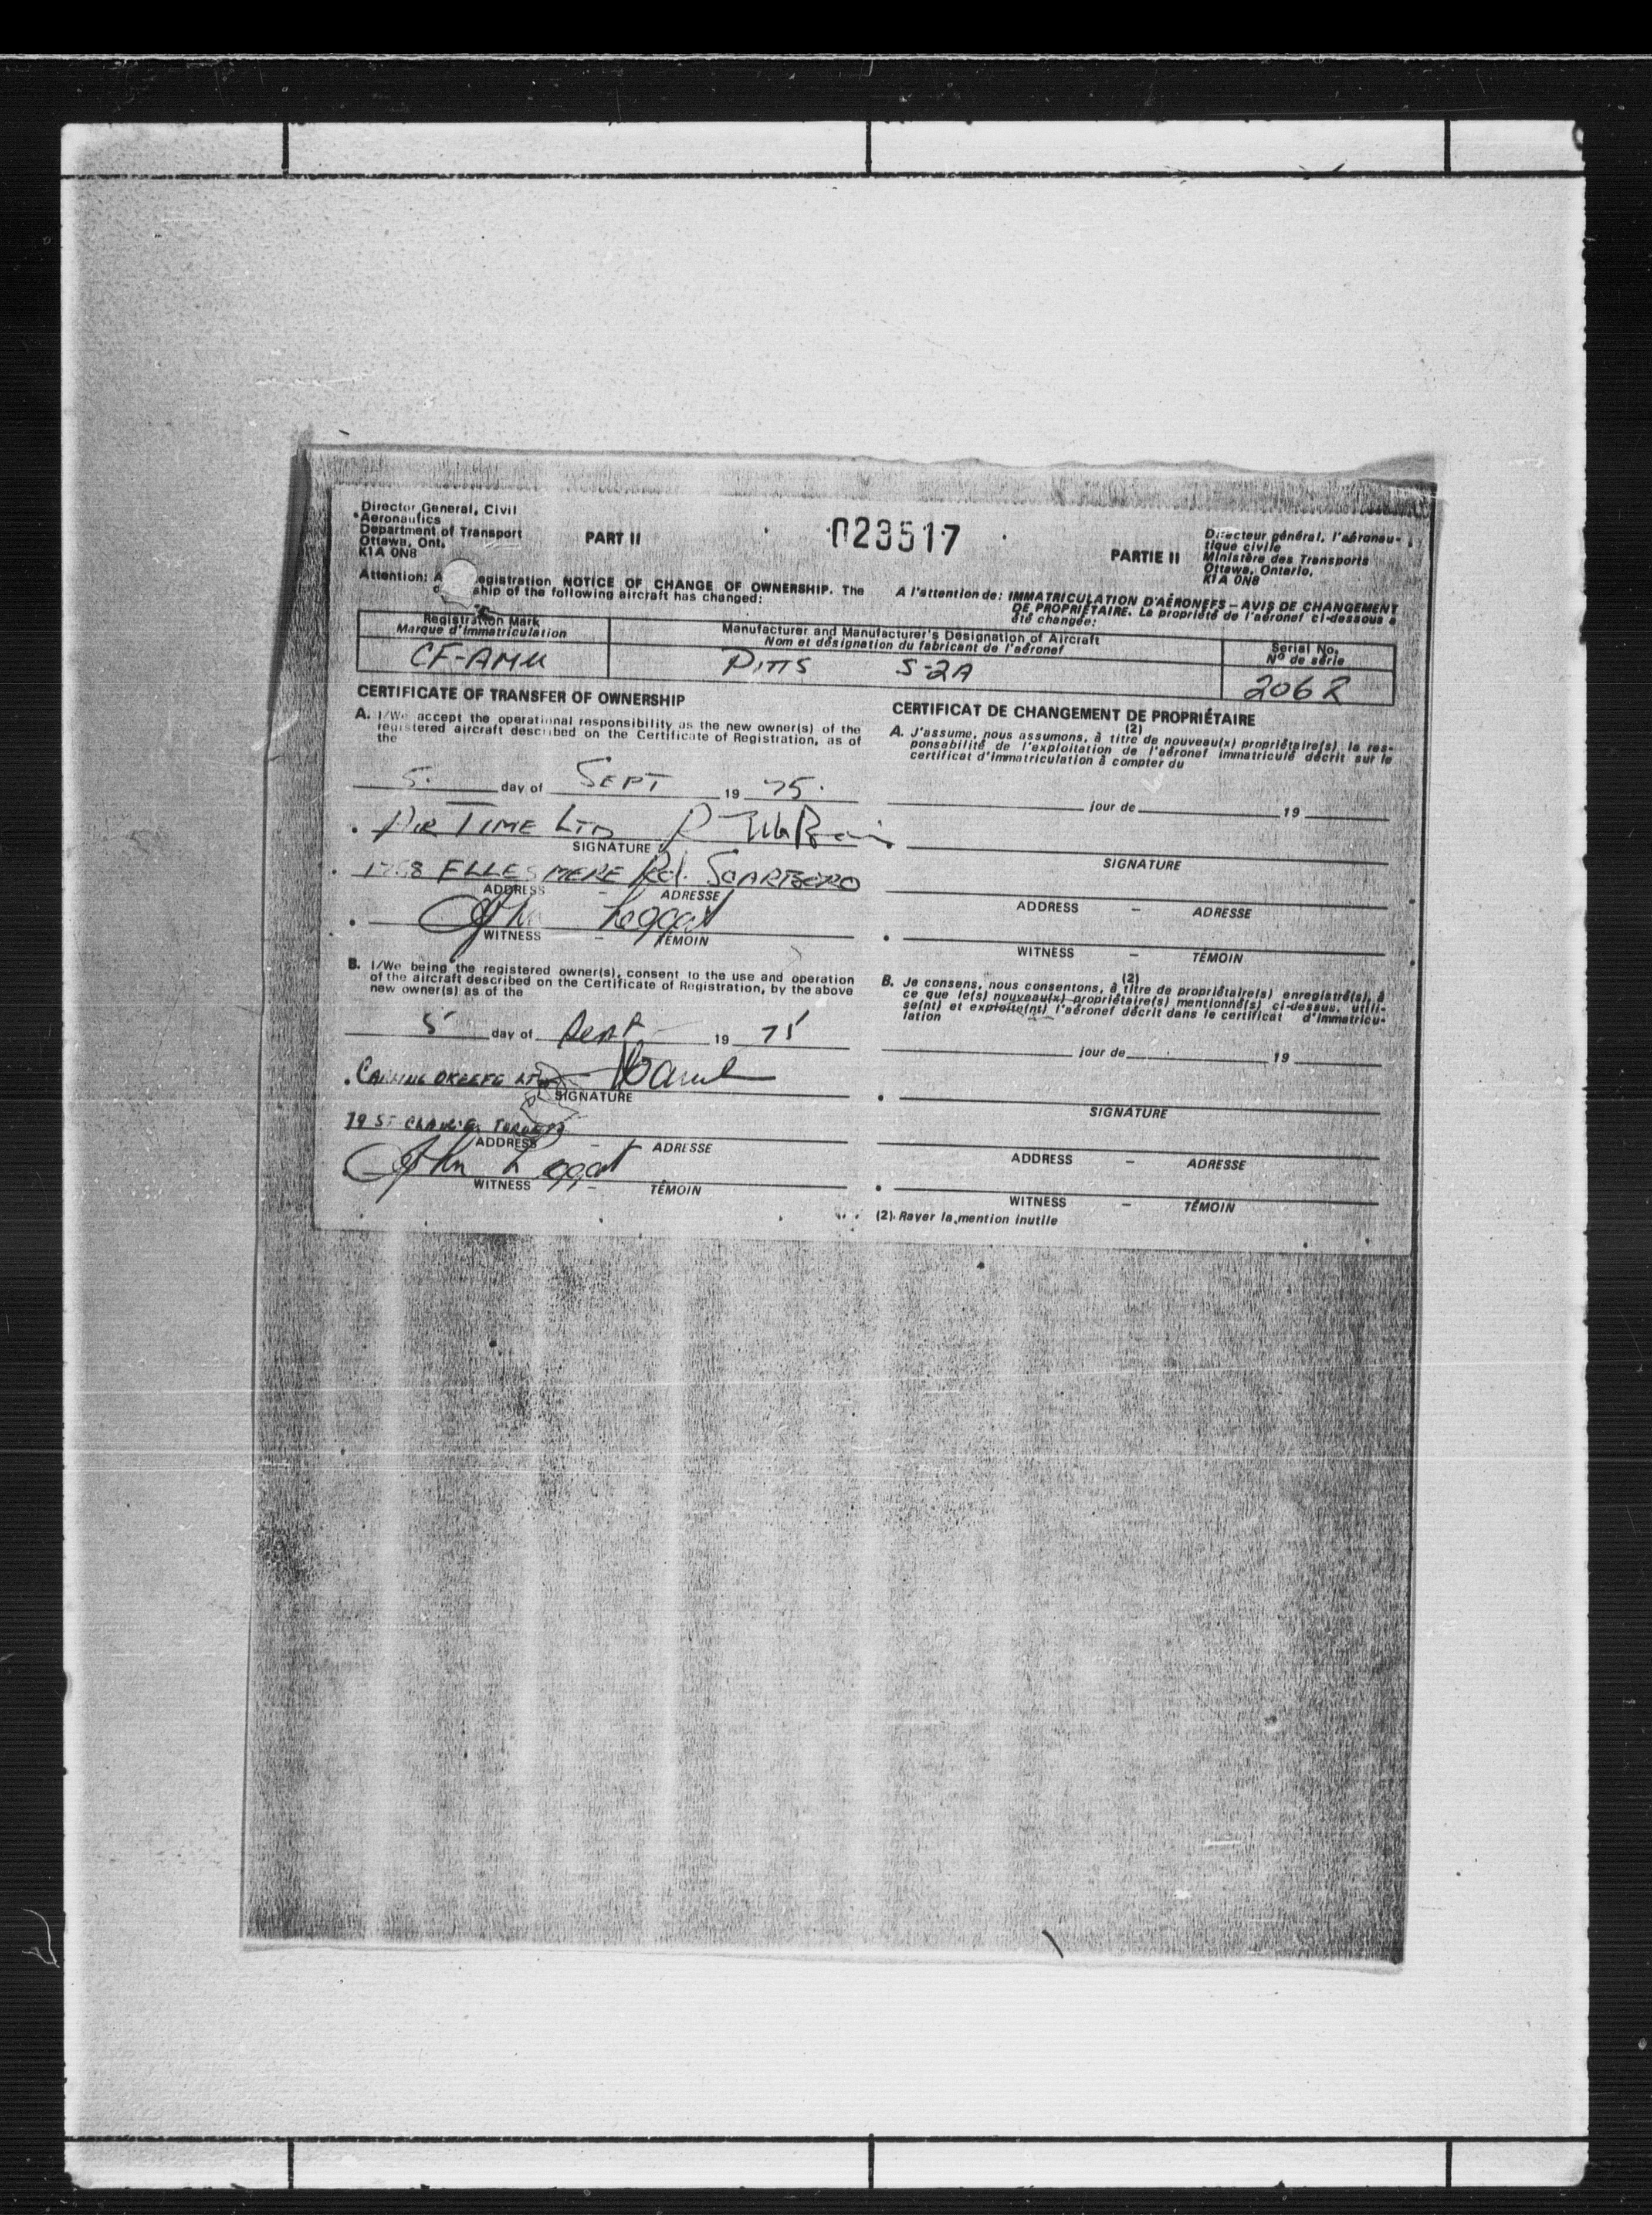 Director General, Civil
Aeronautics
Department of Transport
Ottawa, Ont.
K1A 0N8
PART II
023517
PARTIE II
Directeur général, l'aéronau-
tique civile
Ministère des Transports
Ottawa, Ontario,
K1A 0N8
Attention: A egistration NOTICE OF CHANGE OF OWNERSHIP. The
ship of the following aircraft has changed:
A l'attention de: IMMATRICULATION D'AÉRONEFS – AVIS DE CHANGEMENT
DE PROPRIÉTAIRE. La propriété de l'aéronef ci-dessous a
été changée:
Registration Mark
Marque d'immatriculation
CF-AMU
Manufacturer and Manufacturer's Designation of Aircraft
Nom et désignation du fabricant de l'aéronef
PITTS S-2A
Serial No.
Nº de série
2062
CERTIFICATE OF TRANSFER OF OWNERSHIP
A. I/We accept the operational responsibility as the new owner(s) of the
registered aircraft described on the Certificate of Registration, as of
the
5. day of SEPT 19 75.
AIR TIME LTD
SIGNATURE
ELLESMERE Rd. SCARBORO
ADDRESS – ADRESSE
John Leggat
WITNESS – TÉMOIN
B. I/We being the registered owner(s), consent to the use and operation
of the aircraft described on the Certificate of Registration, by the above
new owner(s) as of the
5 day of Sept 19 75
CARLING OKEEFE LTD
SIGNATURE
79 ST CLAIR E. TORONTO
ADDRESS – ADRESSE
John Leggat
WITNESS – TÉMOIN
CERTIFICAT DE CHANGEMENT DE PROPRIÉTAIRE
(2)
A. J'assume, nous assumons, à titre de nouveau(x) propriétaire(s) la res-
ponsabilité de l'exploitation de l'aéronef immatriculé décrit sur le
certificat d'immatriculation à compter du
jour de 19
SIGNATURE
ADDRESS – ADRESSE
WITNESS – TÉMOIN
(2)
B. Je consens, nous consentons, à titre de propriétaire(s) enregistré(s), à
ce que le(s) nouveau(x) propriétaire(s) mentionné(s) ci-dessus, utili-
se(nt) et exploite(nt) l'aéronef décrit dans le certificat d'immatricu-
lation
jour de 19
SIGNATURE
ADDRESS – ADRESSE
WITNESS – TÉMOIN
(2) Rayer la mention inutile